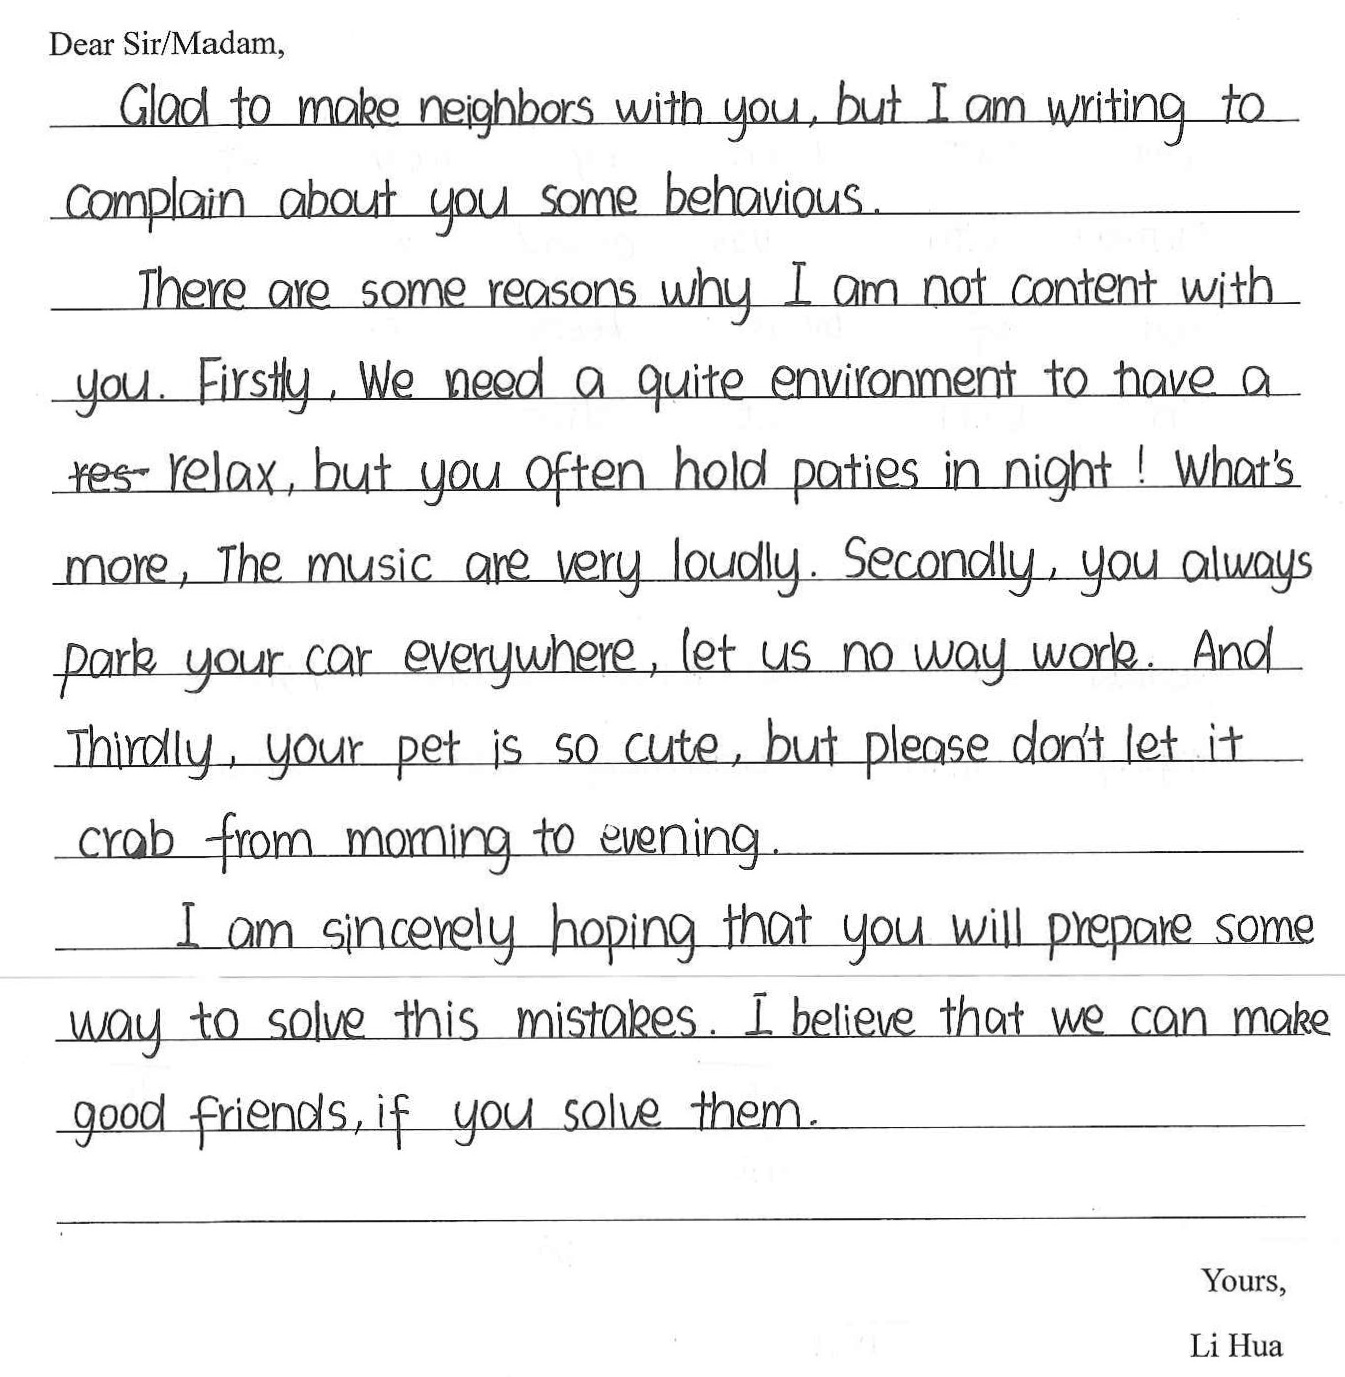 Dear Sir/Madam,
Glad to make neighbors with you, but I am writing to
complain about you some behavious.
There are some reasons why I am not content with
you. Firstly, We need a quite environment to have a
res relax, but you often hold paties in night! What's
more, The music are very loudly. Secondly, you always
park your car everywhere, let us no way work. And
Thirdly, your pet is so cute, but please don't let it
crab from morning to evening.
I am sincerely hoping that you will prepare some
way to solve this mistakes. I believe that we can make
good friends, if you solve them.
Yours,
Li Hua